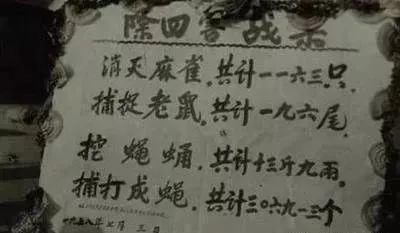 除四害战果
消灭麻雀.共计一一六三只.
捕捉老鼠.共计一九六尾.
挖蝇蛹.共计十三斤九两.
捕打成蝇.共计三〇六九一三个
一九五八年 月三日